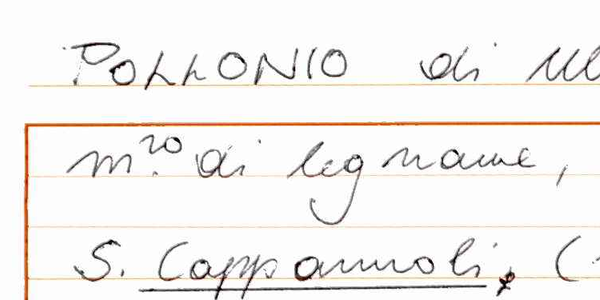 POLLONIO di
m.ro di legname,
S. Cappannoli, (